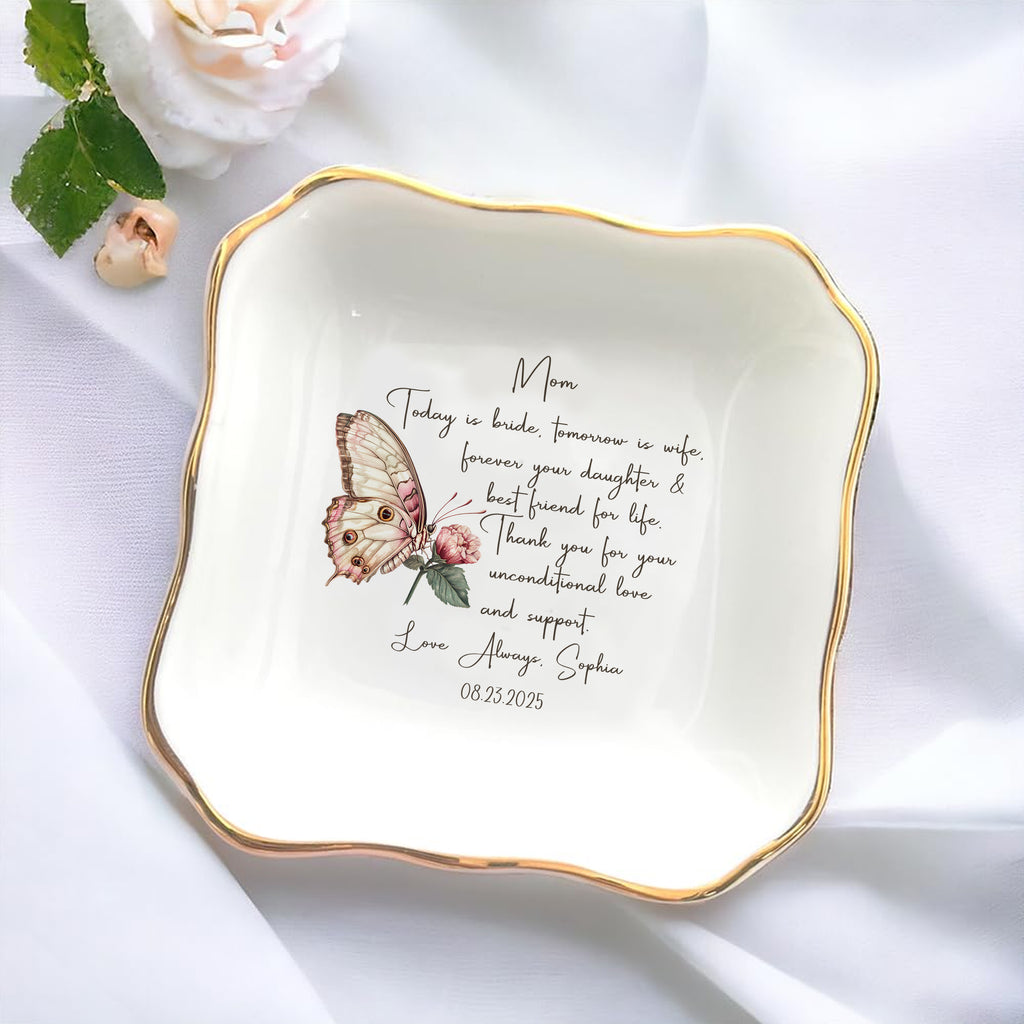 Mom
Today is bride, tomorrow is wife,
forever your daughter &
best friend for life.
Thank you for your
unconditional love
and support.
Love Always, Sophia
08.23.2025